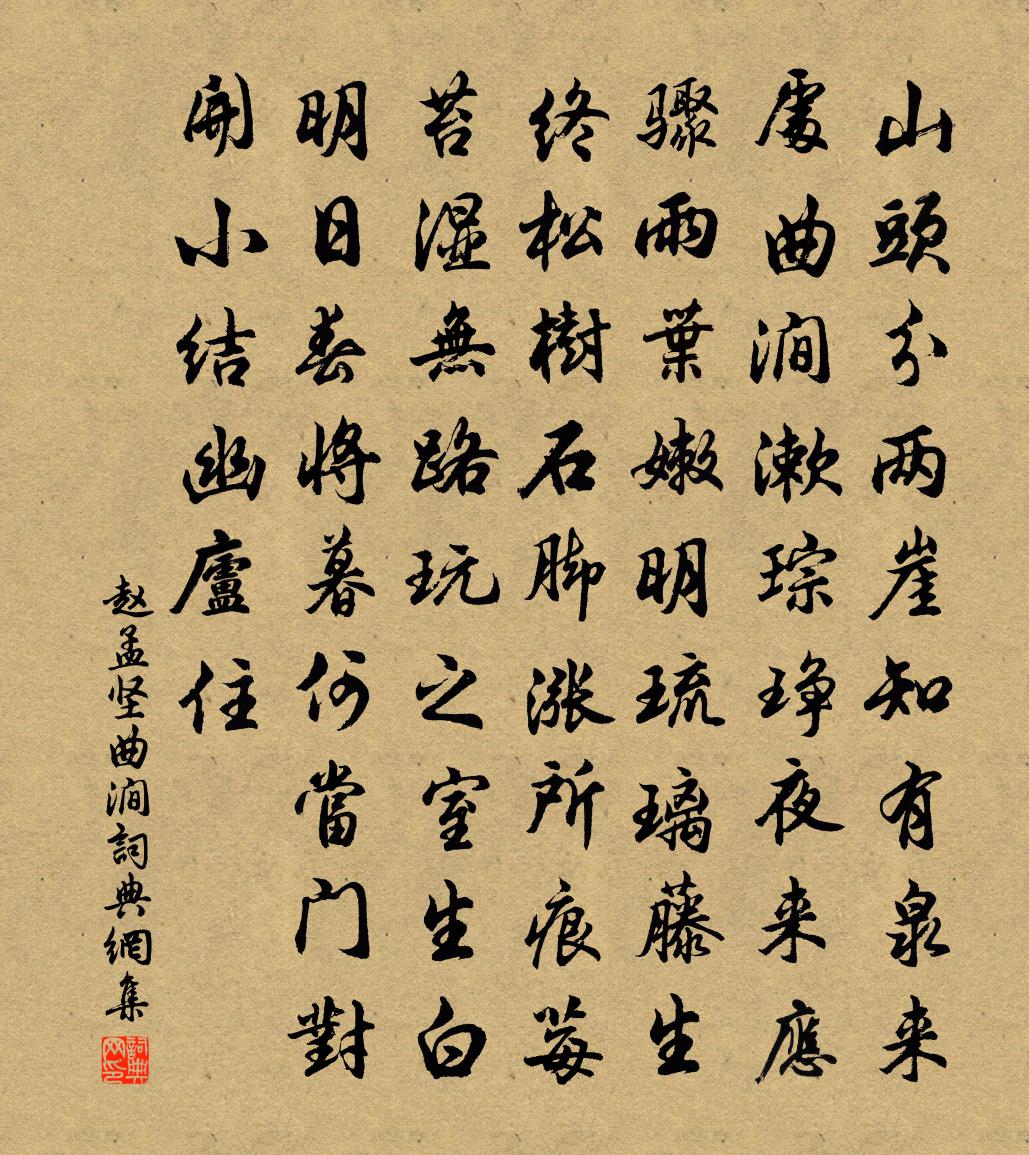 山頭分两崖知有泉来
處曲澗漱琮琤夜来應
驟雨葉嫩明琉璃藤生
终松樹石脚漲所痕莓
苔湿無路玩之室生白
明日春将暮何當门對
開小结幽廬住
赵孟坚曲澗詞典網集
詞典网印